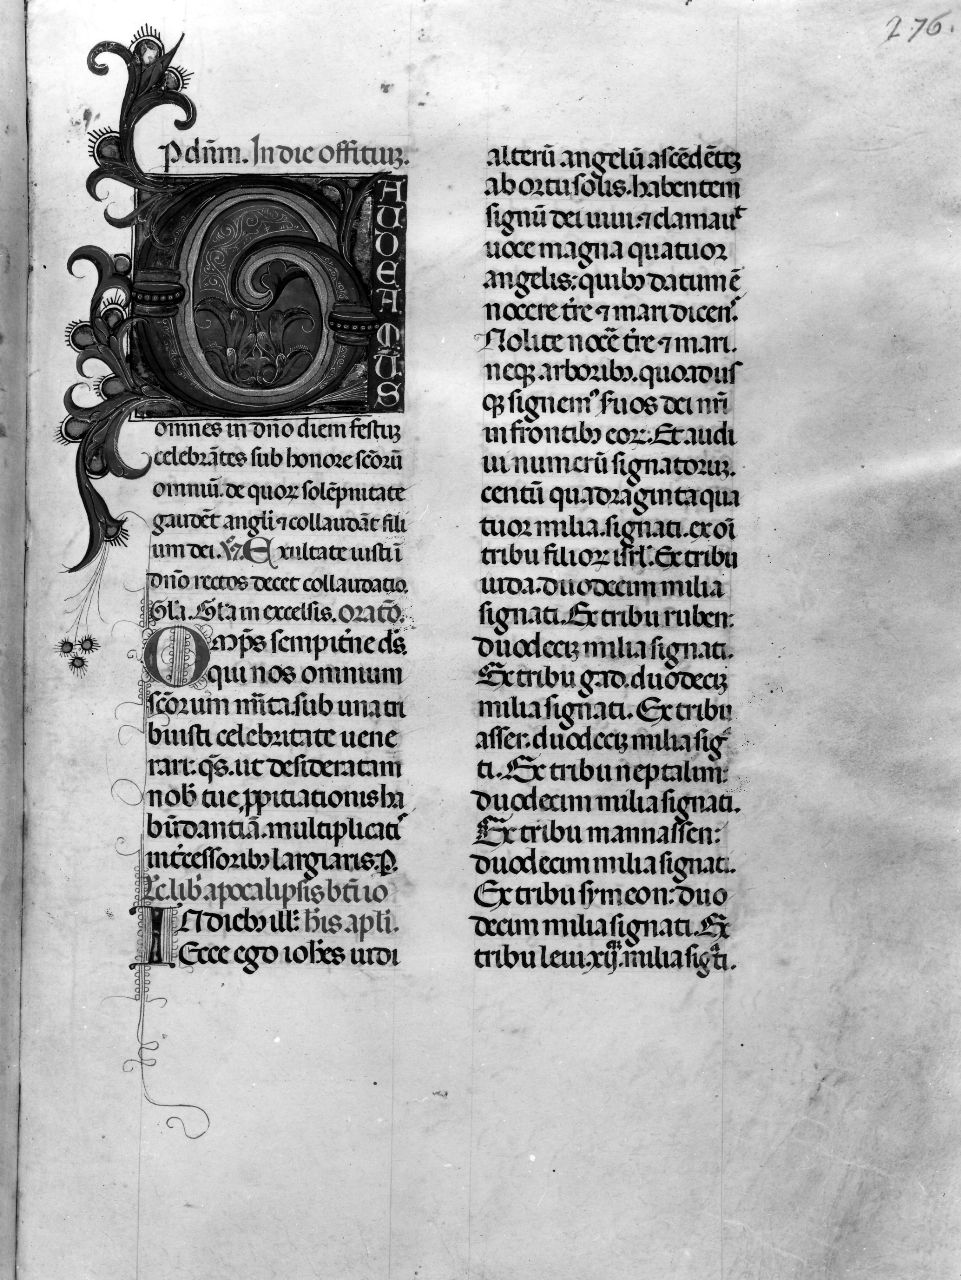 276.
P dn̄m. In die offitiuꝫ.
GAUDEAMUS
omnes in dn̄o diem festuꝫ
celebrātes sub honore sc̄orū
omniū. de quoꝝ solēpnitate
gaudēt angl̄i ⁊ collaudāt fili
um dei. V̄. Exultate iusti ī
dn̄o rectos decet collaudatio.
Gl̄a. Gl̄a in excelsis. oratō.
Omp̄s sempiťne ds̄.
qui nos omnium
sc̄orum mīta. sub una tri
buisti celebritate uene
rari: qs̄. ut desideratam
nob̄ tue ꝓpitiationis ha
būdantiā. multiplicatis
inťcessoribꝫ largiaris. P.
Lc̄. lib̄. apocalipsis bt̄i io
IN diebꝫ ill̄: his apl̄i.
Ecce ego ioh̄es uidi
alterū angelū ascēdētꝫ
ab ortu solis. habentem
signū dei uiui: ⁊ clamauit
uoce magna quatuor
angelis: quibꝫ datum ē
nocere t̄re ⁊ mari dicens.
Nolite nocē t̄re ⁊ mari.
neqꝫ. arboribꝫ. quo.adus
qꝫ signemꝰ suos dei nr̄i
in frontibꝫ eoꝝ: Et audi
ui numerū signatoruꝫ.
centū quadraginta qua
tuor milia. signati. ex oī
tribu filioꝝ isrl̄. Ex tribu
iuda. duodecim milia
signati. Ex tribu ruben:
duodeciꝫ milia signati.
Ex tribu gad. duodeciꝫ
milia signati. Ex tribu
asser: duodeciꝫ milia signa
ti. Ex tribu neptalim:
duodecim milia signati.
Ex tribu mannassen:
duodecim milia signati.
Ex tribu symeon: duo
decim milia signati. Ex
tribu leui. xij. milia sigti.